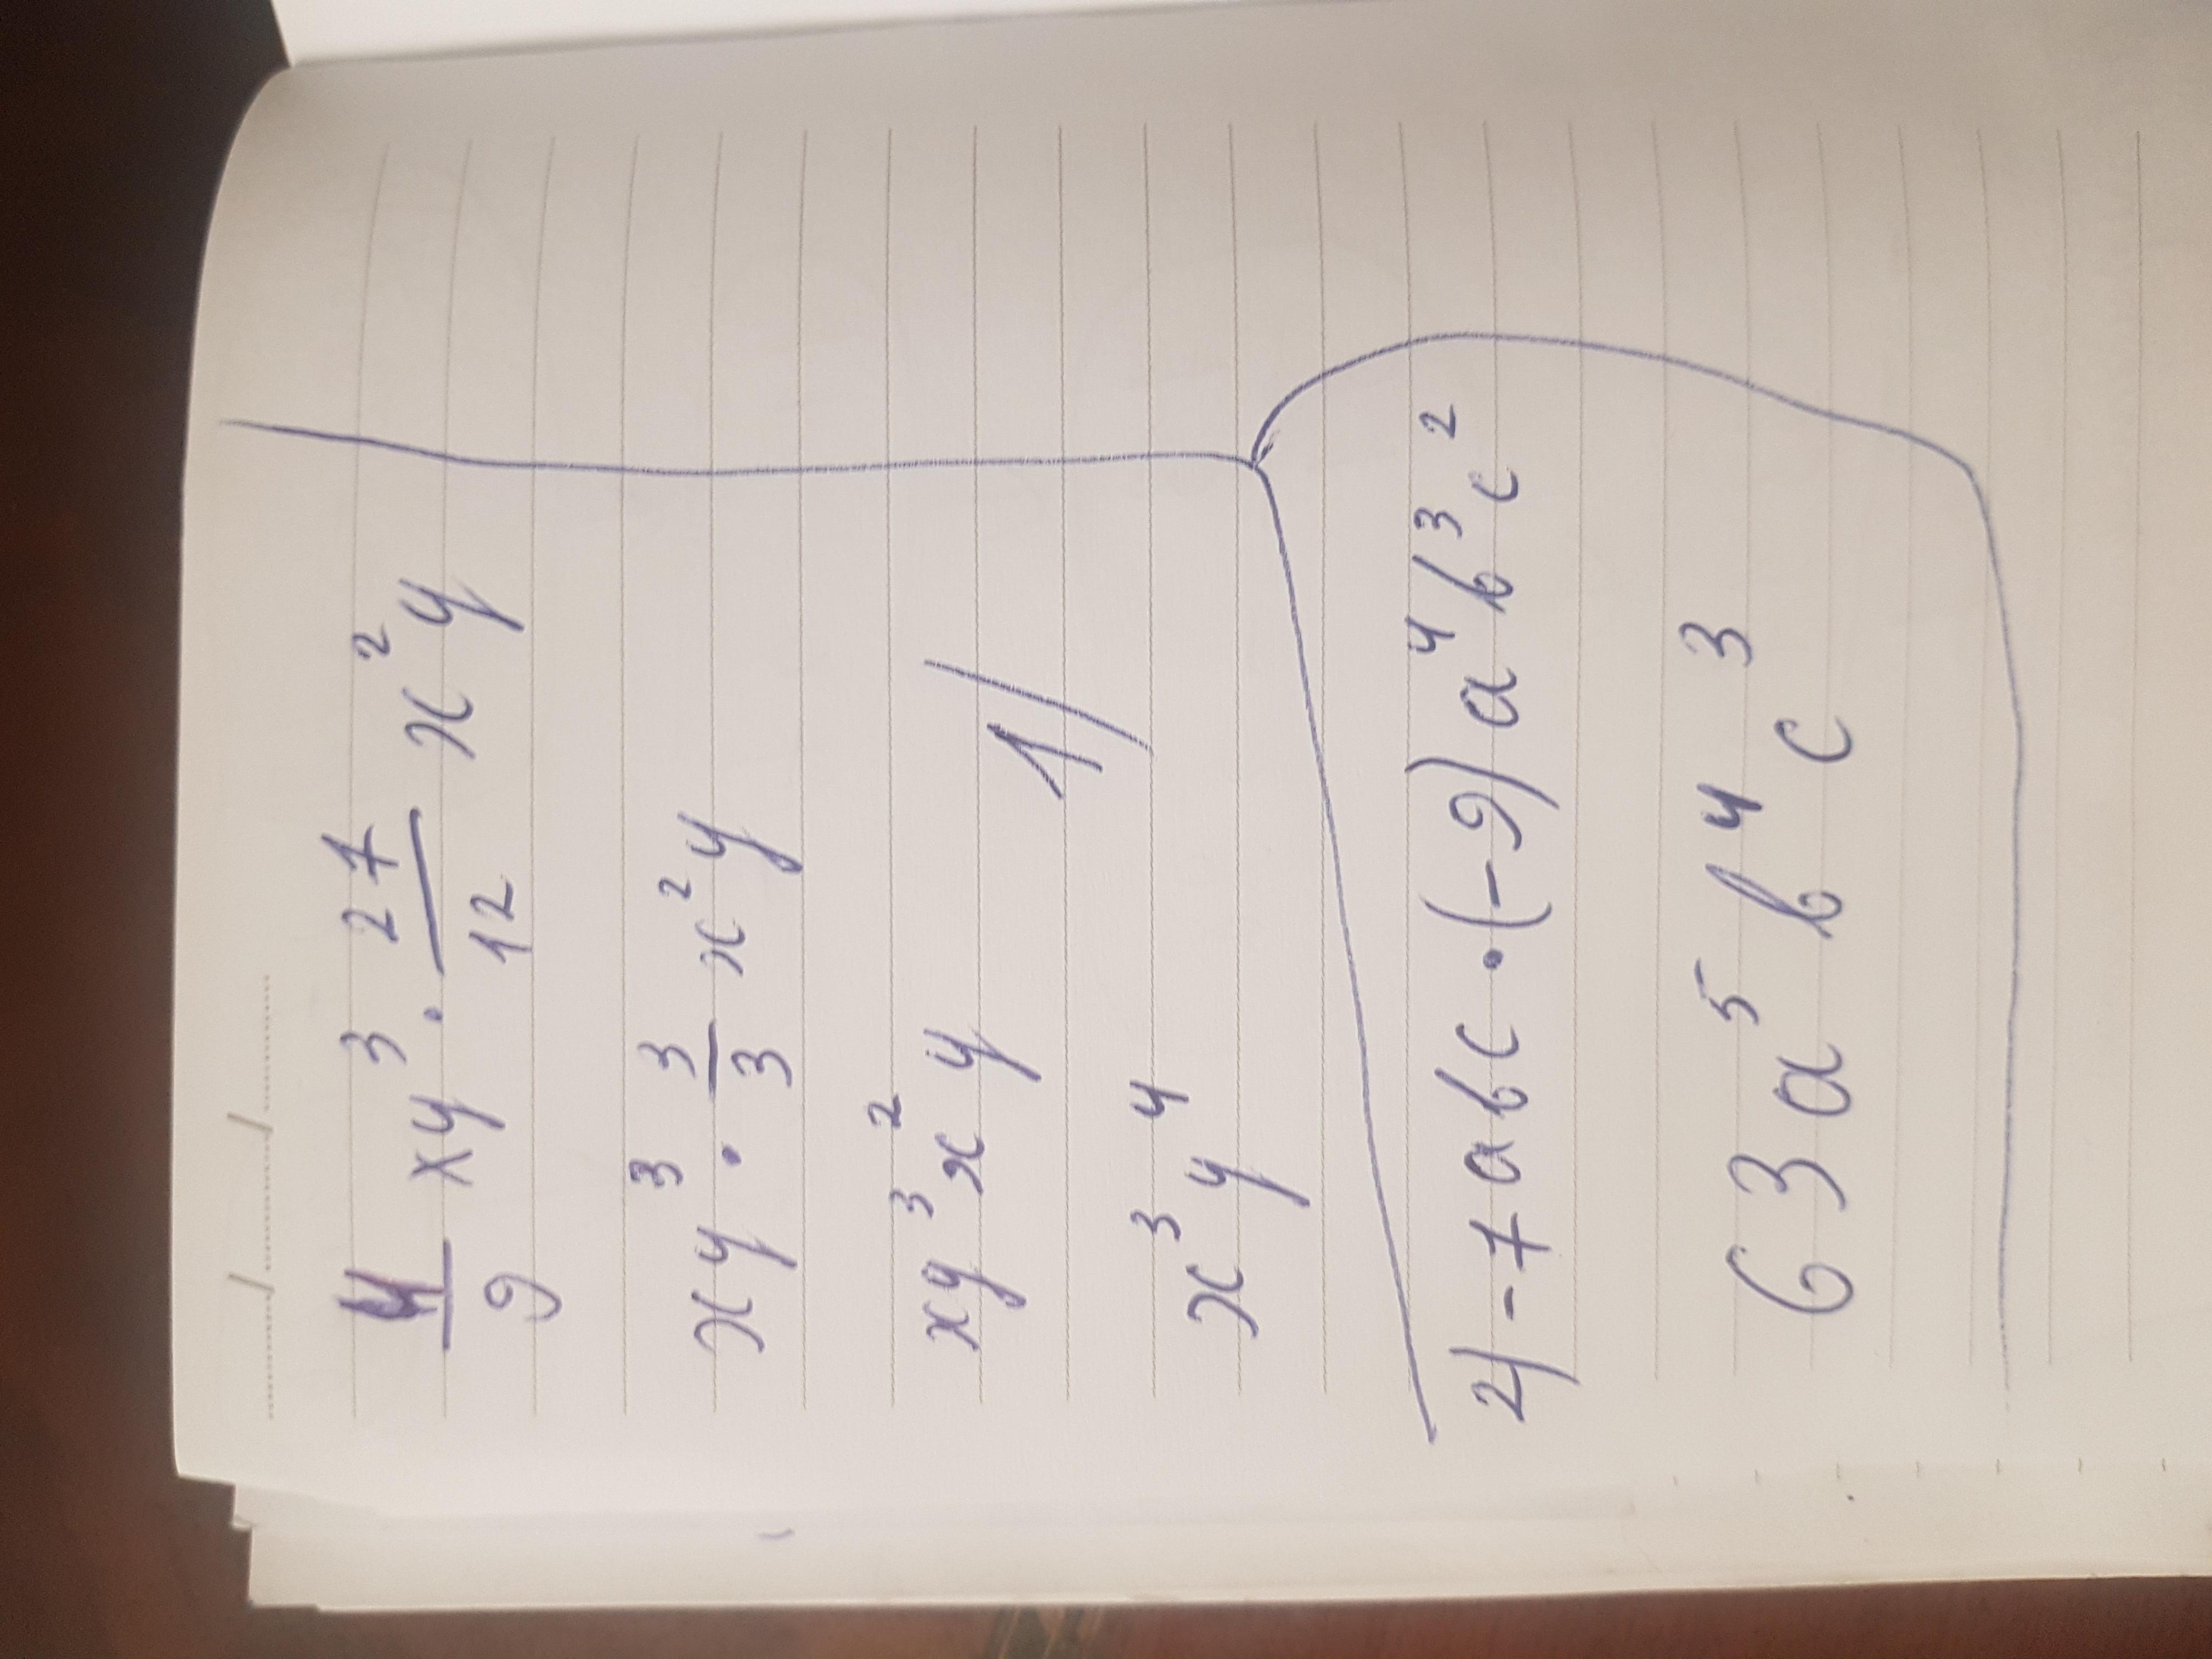 4/9 xy³ · 27/12 x²y
xy³ · 3/3 x²y
xy³x²y
1)
x³y⁴
2) -7abc · (-9)a⁴b³c²
63a⁵b⁴c³